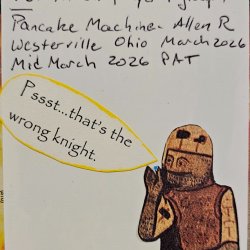 Pancake Machine- Allen R
Westerville Ohio March 2026
Mid March 2026 PAT
Pssst...that's the
wrong knight.